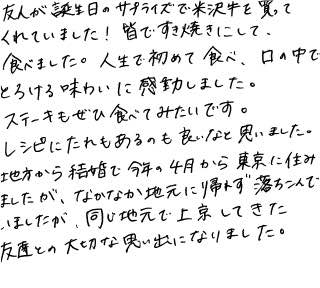 友人が誕生日のサプライズで米沢牛を買って
くれていました！皆ですき焼きにして、
食べました。人生で初めて食べ、口の中で
とろける味わいに感動しました。
ステーキもぜひ食べてみたいです。
レシピにたれもあるのも良いなと思いました。
地方から結婚で今年の4月から東京に住み
ましたが、なかなか地元に帰れず落ちこんで
いましたが、同じ地元で上京してきた
友達との大切な思い出になりました。